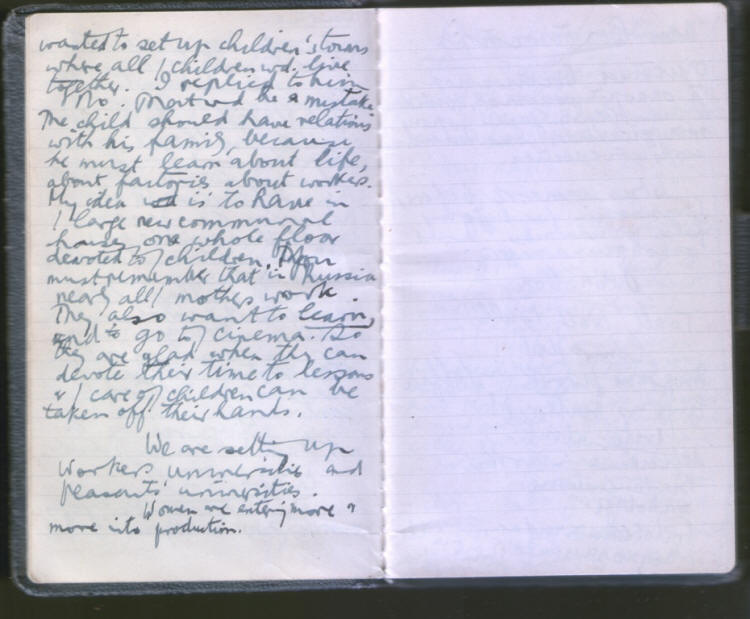 wanted to set up children's towns
where all / children wd. live
together. I replied to him
No. That wd be a mistake
The child should have relations
with his family, because
he must learn about life,
about factories, about workers.
My idea is to have in
/ large new communal
houses one whole floor
devoted to / children. You
must remember that in Russia
nearly all / mothers work.
They also want to learn,
and to go to / cinema. So
they are glad when they can
devote their time to lessons
& / care of / children can be
taken off their hands.
We are setting up
Workers universities and
peasants' universities.
Women are entering more &
more into production.